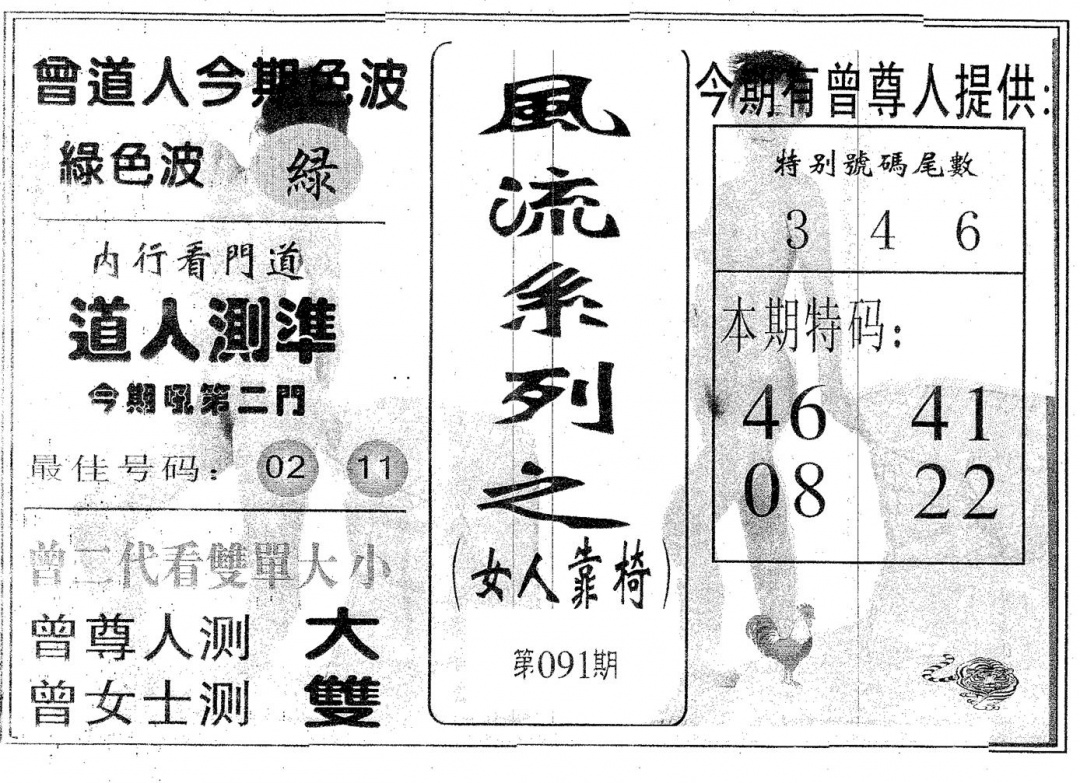 曾道人今期色波
綠色波 緑
內行看門道
道人測準
今期吼第二門
最佳号码： 02 11
曾二代看雙單大小
曾尊人测 大
曾女士测 雙
風流系列之
(女人靠椅)
第091期
今期有曾尊人提供:
特别號碼尾數
3 4 6
本期特码:
46 41
08 22